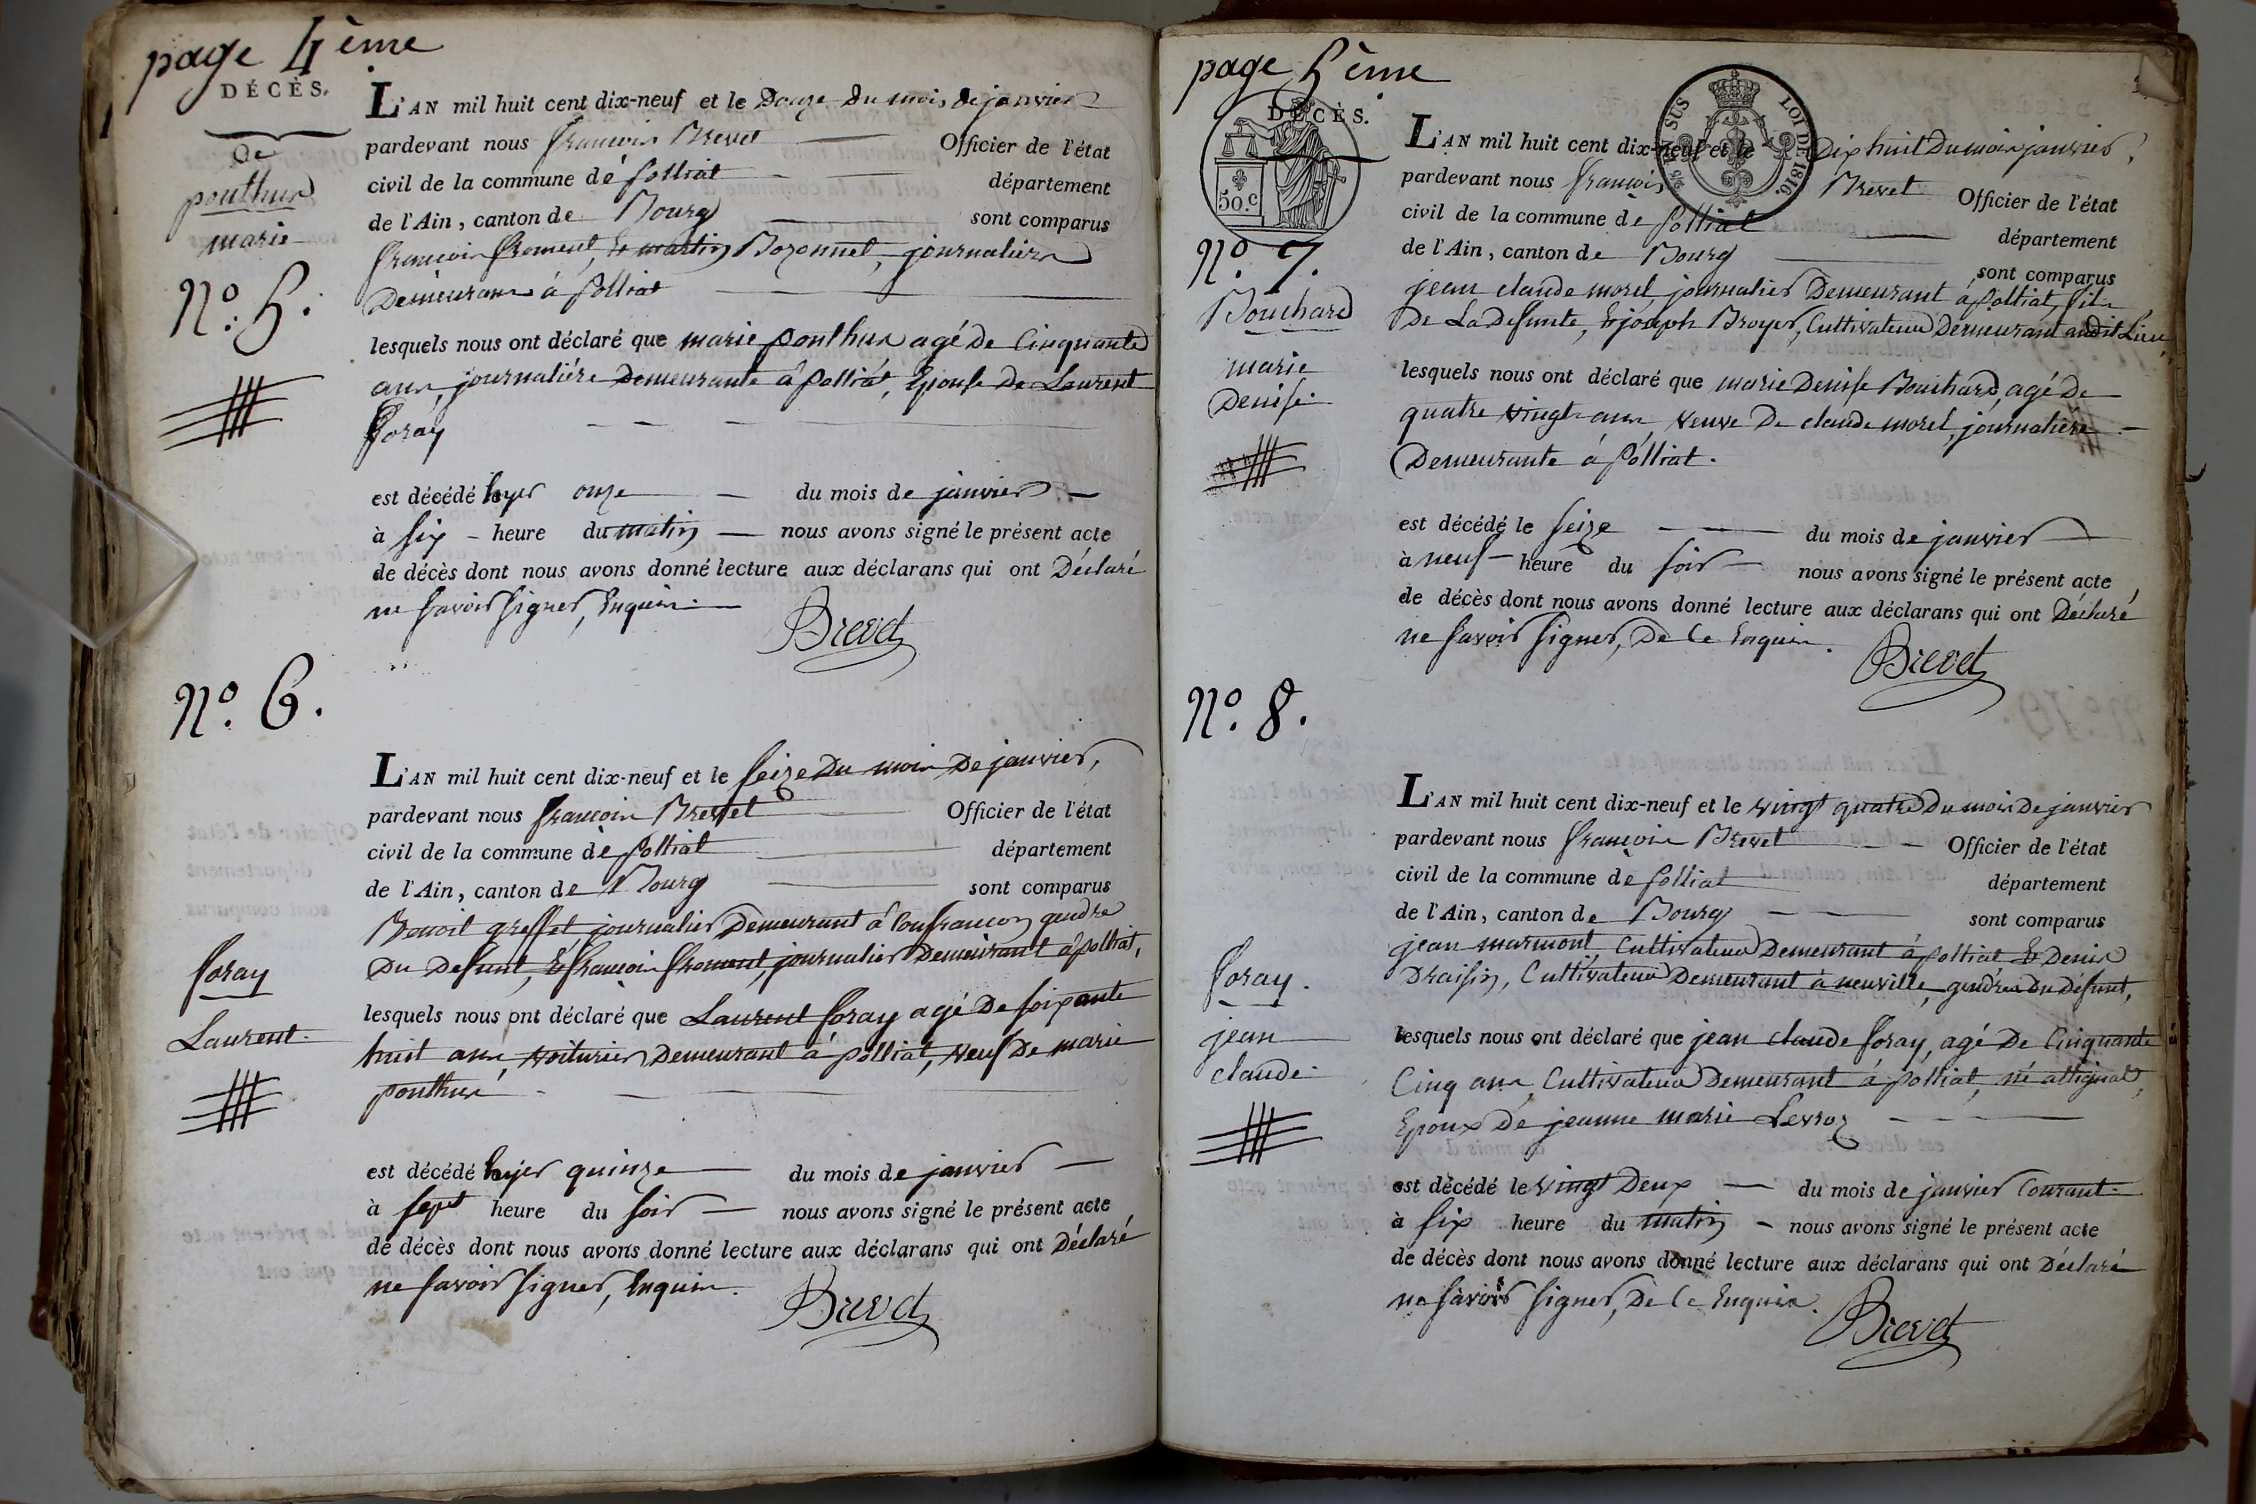 page 4ème
DÉCÈS.
de
ponthus
marie
N.º 5.
L'AN mil huit cent dix-neuf et le Douze du mois de janvier
pardevant nous françois Brevet Officier de l'état
civil de la commune de polliat département
de l'Ain, canton de Bourg sont comparus
françois froment, Et martin Bozonnet, journaliers
Demeurans à polliat
lesquels nous ont déclaré que marie ponthus agé de Cinquante
ans, journalière Demeurante à polliat, Epouse de Laurent
foray
est décédé hyer onze du mois de janvier
à six heure du matin nous avons signé le présent acte
de décès dont nous avons donné lecture aux déclarans qui ont Déclaré
ne savoir signer, Enquis.
Brevet
N.º 6.
foray
Laurent.
L'AN mil huit cent dix-neuf et le seize du mois de janvier,
pardevant nous françois Brevet Officier de l'état
civil de la commune de polliat département
de l'Ain, canton de Bourg sont comparus
Benoit greffet journalier Demeurant à Confrancon gendre
du defunt, Et françois froment, journalier Demeurant à polliat,
lesquels nous ont déclaré que Laurent foray agé De soixante
huit ans, voiturier Demeurant à polliat, veuf De marie
ponthus
est décédé hyer quinze du mois de janvier
à sept heure du soir nous avons signé le présent acte
de décès dont nous avons donné lecture aux déclarans qui ont Déclaré
ne savoir signer, Enquis.
Brevet
page 5ème
DÉCÈS.
50.c
SUS
LOI DE 1816.
N.º 7.
Bouchard
marie
Denise.
L'AN mil huit cent dix-neuf et le Dix huit Du mois janvier,
pardevant nous françois Brevet Officier de l'état
civil de la commune de polliat département
de l'Ain, canton de Bourg sont comparus
jean claude morel journalier Demeurant à polliat, fils
De La Defunte, Et joseph Broyer, Cultivateur Demeurant audit Lieu,
lesquels nous ont déclaré que marie Denise Bouchard, agé De
quatre vingt ans veuve De claude morel, journalière
Demeurante à polliat.
est décédé le seize du mois de janvier
à neuf heure du soir nous avons signé le présent acte
de décès dont nous avons donné lecture aux déclarans qui ont Déclaré
ne savoir signer, De Ce Enquis.
Brevet
N.º 8.
foray.
jean
claude.
L'AN mil huit cent dix-neuf et le vingt quatre Du mois De janvier
pardevant nous françois Brevet Officier de l'état
civil de la commune de polliat département
de l'Ain, canton de Bourg sont comparus
jean marmont, Cultivateur Demeurant à polliat Et Denis
Draisin, Cultivateur Demeurant à neuville, gendres Du Défunt,
lesquels nous ont déclaré que jean claude foray, agé De Cinquante
Cinq ans, Cultivateur Demeurant à polliat, né attignat,
Epoux De jeanne marie Levroz
est décédé le vingt Deux du mois de janvier Courant.
à six heure du matin nous avons signé le présent acte
de décès dont nous avons donné lecture aux déclarans qui ont Déclaré
ne savoir signer, De Ce Enquis.
Brevet